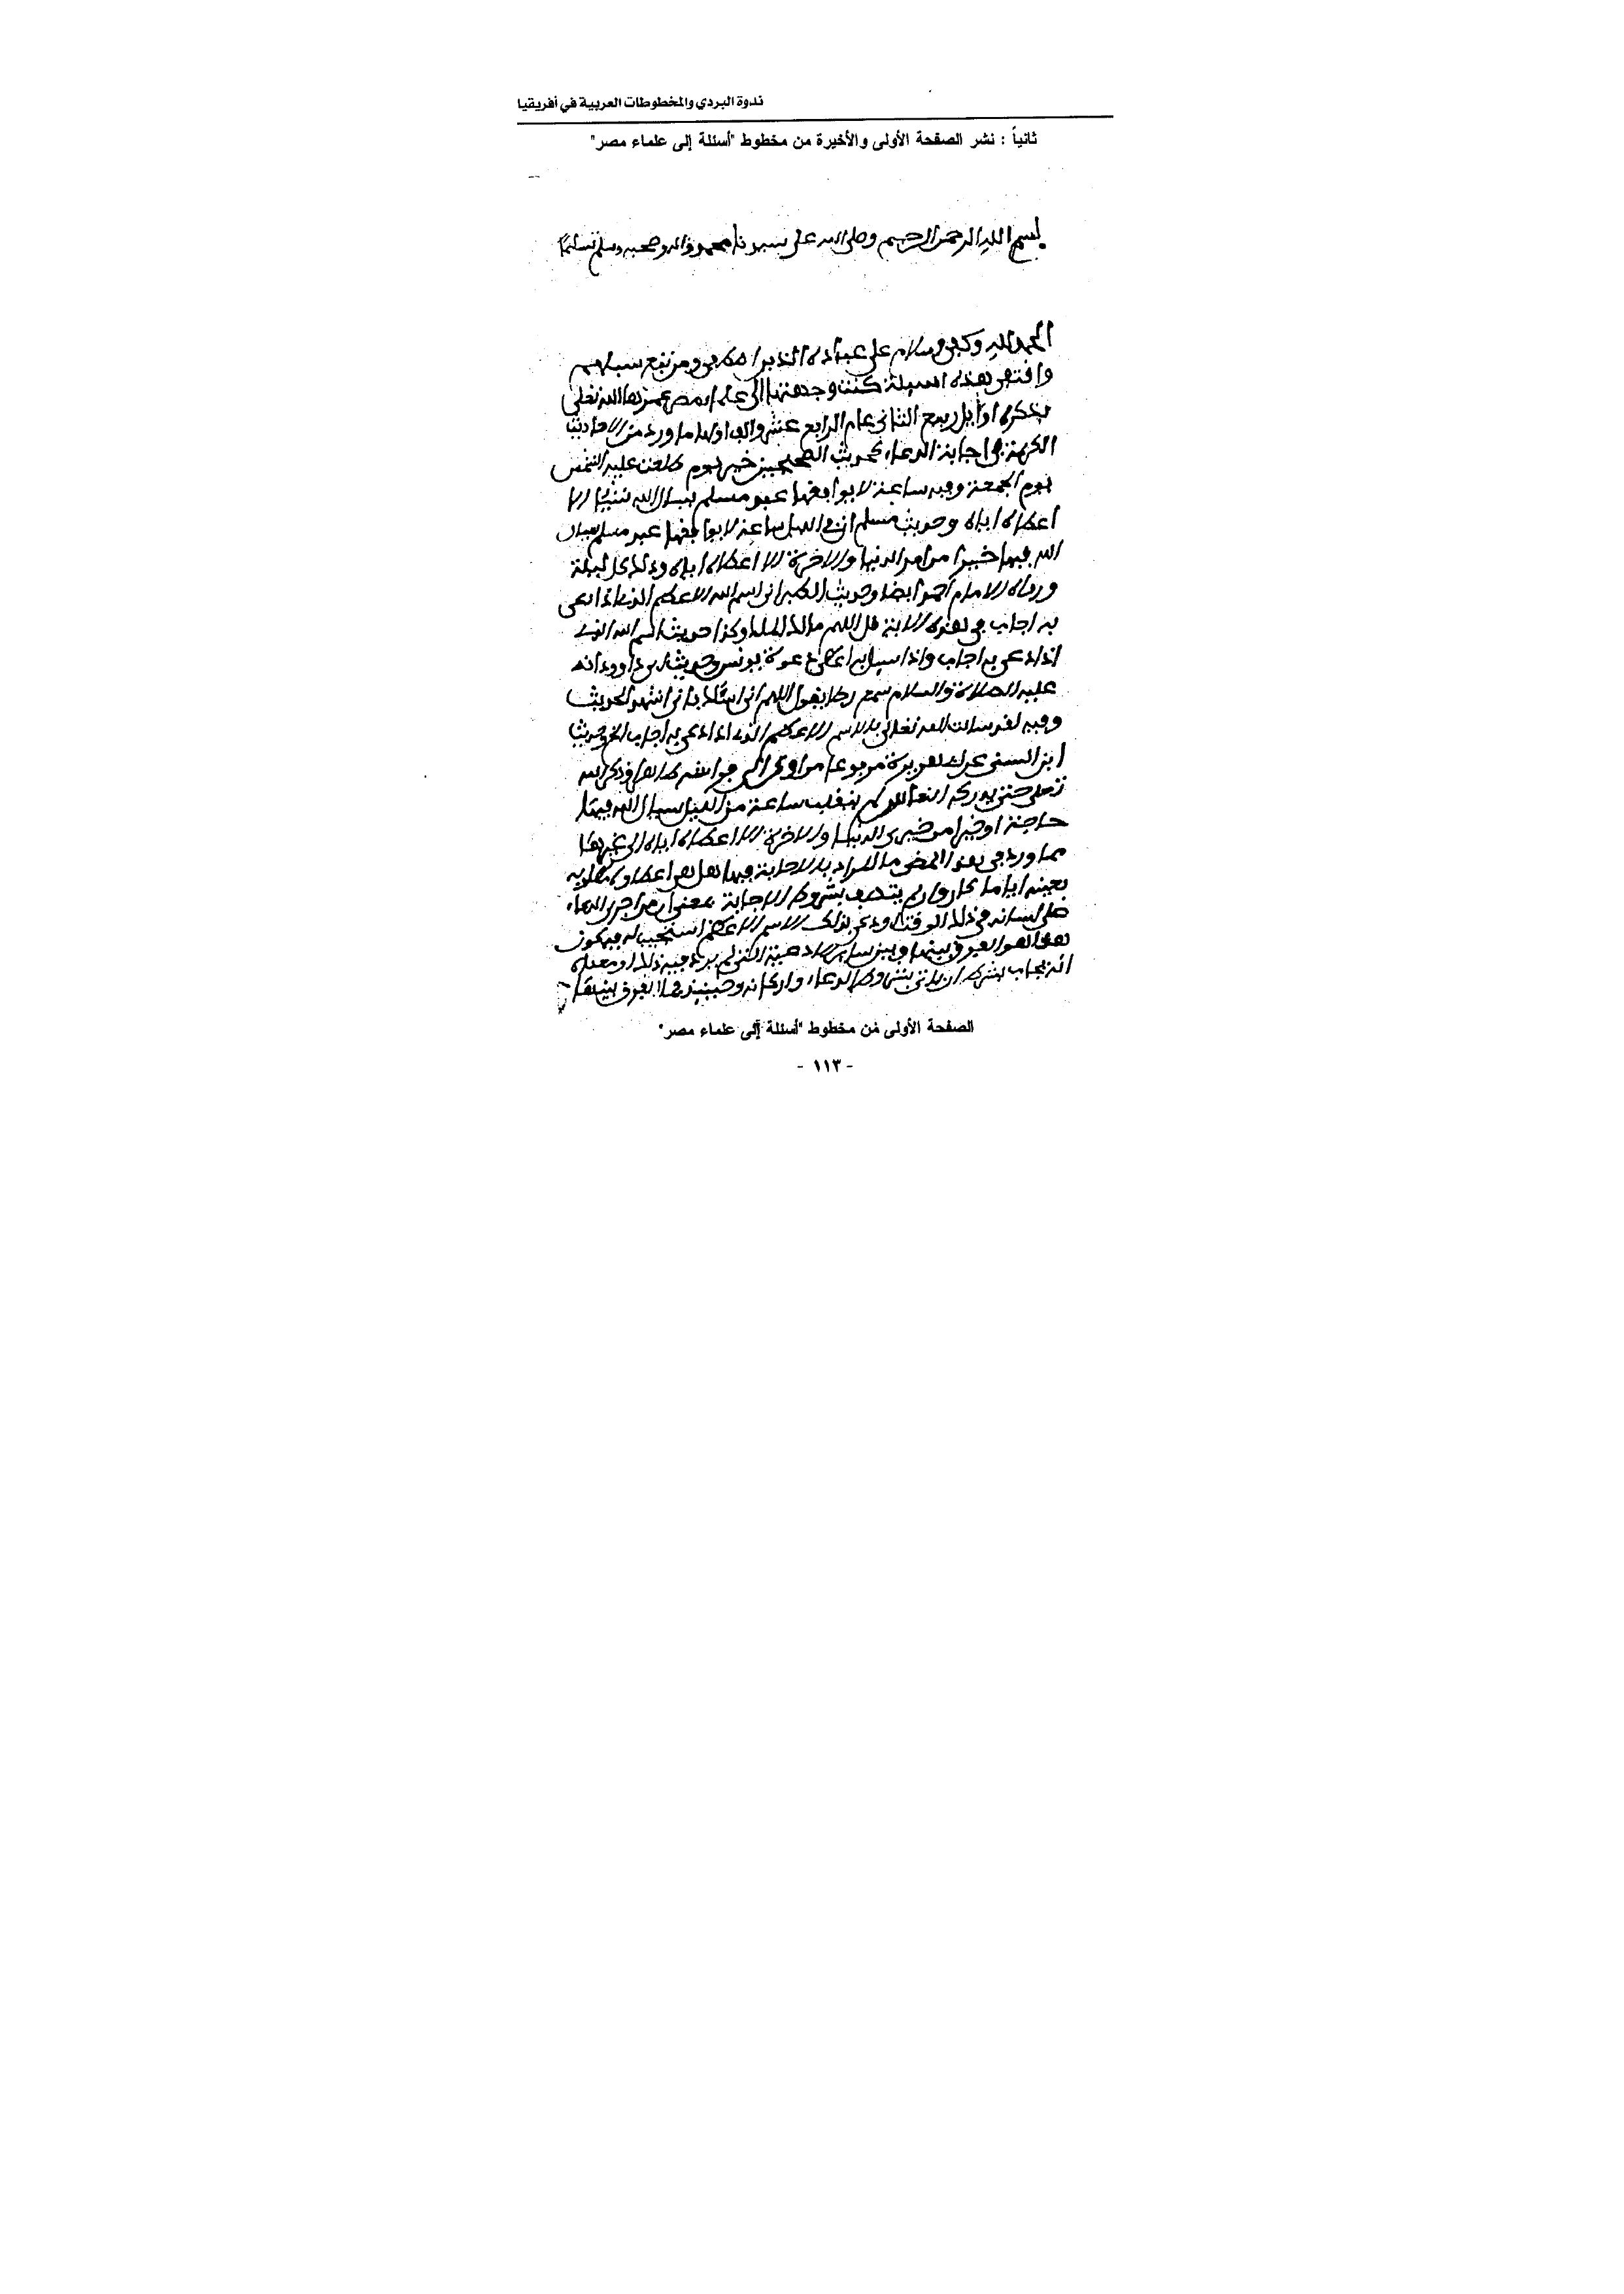 ندوة البردي والمخطوطات العربية في أفريقيا
ثانياً : نشر الصفحة الأولى والأخيرة من مخطوط "أسئلة إلى علماء مصر"
بسم الله الرحمن الرحيم وصلى الله على سيدنا محمد واله وصحبه وسلم تسليمًا
الحمد لله وكفى وسلام على عباده الذين اصطفى ومن تبع سبيلهم
وافتفى هذه اسيلة كنت وجهتها الى علماء مصر عمرها الله تعلى
بذكره اوايل ربيع الثانى عام الرابع عشر والف اولها ما ورد من الاحاديث
الكريمة فى اجابة الدعاء كحديث الصحيحين خير يوم طلعت عليه الشمس
يوم الجمعة وفيه ساعة لا يوافقها عبد مسلم يسال الله شيئا الا
اعطاه اياه وحديث مسلم ان فى الليل ساعة لا يوافقها عبد مسلم يسال
الله فيها خيرا من امر الدنيا والاخرة الا اعطاه اياه وذلك كل ليلة
ورواه الامام احمد ايضا وحديث الطبرانى اسم الله الاعظم الذى اذا دعى
به اجاب فى هذه الاية قل اللهم مالك الملك وكذا حديث اسم الله الذى
اذا دعى به اجاب واذا سيل به اعطى دعوة يونس وحديث ابى داوود انه
عليه الصلاة والسلام سمع رجلا يقول اللهم انى اسئلك بانى اشهد الحديث
وفيه لقد سالت الله تعالى بالاسم الاعظم الذى اذا دعى به اجاب الخ وحديث
ابن السنى عن ابى هريرة مرفوعا من اوى الى فراشه طاهرا وذكر الله
تعلى حتى يدركه النعاس لم ينقلب ساعة من الليل يسال الله فيها
حاجة او خيرا من خيرى الدنيا والاخرة الا اعطاه اياه الى غيرها
مما ورد فى هذا المعنى ما المراد بالاجابة فيها هل هو اعطاء مطلوبه
بعينه اياما كان وان لم يتصف بشروط الاجابة بمعنى ان من اجرى الدعاء
على لسانه فى ذلك الوقت او دعى بذلك الاسم الاعظم استجيب له فيكون
هذا هو الفرق بينها وبين ساير الادعية التى لم يرد فيه ذلك او معناه
انه يجاب بشرط ان ياتى بشروط الدعاء واركانه وحينيذ فما الفرق بينها
الصفحة الأولى من مخطوط "أسئلة إلى علماء مصر"
- ١١٣ -